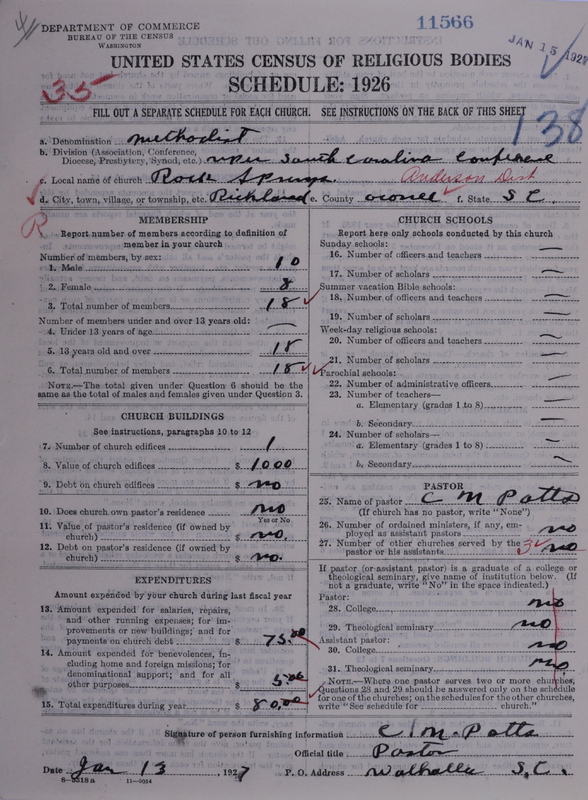 DEPARTMENT OF COMMERCE
BUREAU OF THE CENSUS
WASHINGTON
11566
JAN 15 1927
UNITED STATES CENSUS OF RELIGIOUS BODIES
SCHEDULE: 1926
35
138
FILL OUT A SEPARATE SCHEDULE FOR EACH CHURCH. SEE INSTRUCTIONS ON THE BACK OF THIS SHEET
a. Denomination Methodist
b. Division (Association, Conference,
Diocese, Presbytery, Synod, etc.) upper South Carolina Conference
c. Local name of church Rock Springs. Anderson Dist
d. City, town, village, or township, etc. Richland e. County oconee f. State S C.
R
MEMBERSHIP
Report number of members according to definition of
member in your church
Number of members, by sex:
1. Male 10
2. Female 8
3. Total number of members 18
Number of members under and over 13 years old:
4. Under 13 years of age —
5. 13 years old and over 18
6. Total number of members 18
NOTE.—The total given under Question 6 should be
same as the total of males and females given under Question 3.
CHURCH BUILDINGS
See instructions, paragraphs 10 to 12
7. Number of church edifices 1
8. Value of church edifices $ 1000
9. Debt on church edifices $ no
10. Does church own pastor's residence no
Yes or No
11. Value of pastor's residence (if owned by
church) $ no.
12. Debt on pastor's residence (if owned by
church) $ no.
EXPENDITURES
Amount expended by your church during last fiscal year
13. Amount expended for salaries, repairs,
and other running expenses; for im-
provements or new buildings; and for
payments on church debt $ 75.00
14. Amount expended for benevolences, in-
cluding home and foreign missions; for
denominational support; and for all
other purposes $ 5.00
15. Total expenditures during year $ 80.00
CHURCH SCHOOLS
Report here only schools conducted by this church
Sunday schools:
16. Number of officers and teachers —
17. Number of scholars —
Summer vacation Bible schools:
18. Number of officers and teachers —
19. Number of scholars —
Week-day religious schools:
20. Number of officers and teachers —
21. Number of scholars —
Parochial schools:
22. Number of administrative officers —
23. Number of teachers—
a. Elementary (grades 1 to 8) —
b. Secondary —
24. Number of scholars—
a. Elementary (grades 1 to 8) —
b. Secondary —
PASTOR
25. Name of pastor C M Potts
(If church has no pastor, write "None")
26. Number of ordained ministers, if any, em-
ployed as assistant pastors no
27. Number of other churches served by the
pastor or his assistants 3 no
If pastor (or assistant pastor) is a graduate of a college or
theological seminary, give name of institution below. (If
not a graduate, write "No" in the space indicated.)
Pastor:
28. College no
29. Theological seminary no
Assistant pastor:
30. College no
31. Theological seminary no
NOTE.—Where one pastor serves two or more churches,
Questions 28 and 29 should be answered only on the schedule
for one of the churches; on the schedules for the other churches,
write "See schedule for church."
Signature of person furnishing information C M. Potts
Official title Pastor
Date Jan 13, 1927 P. O. Address Walhalla S. C.
8—5518 a 11—9034